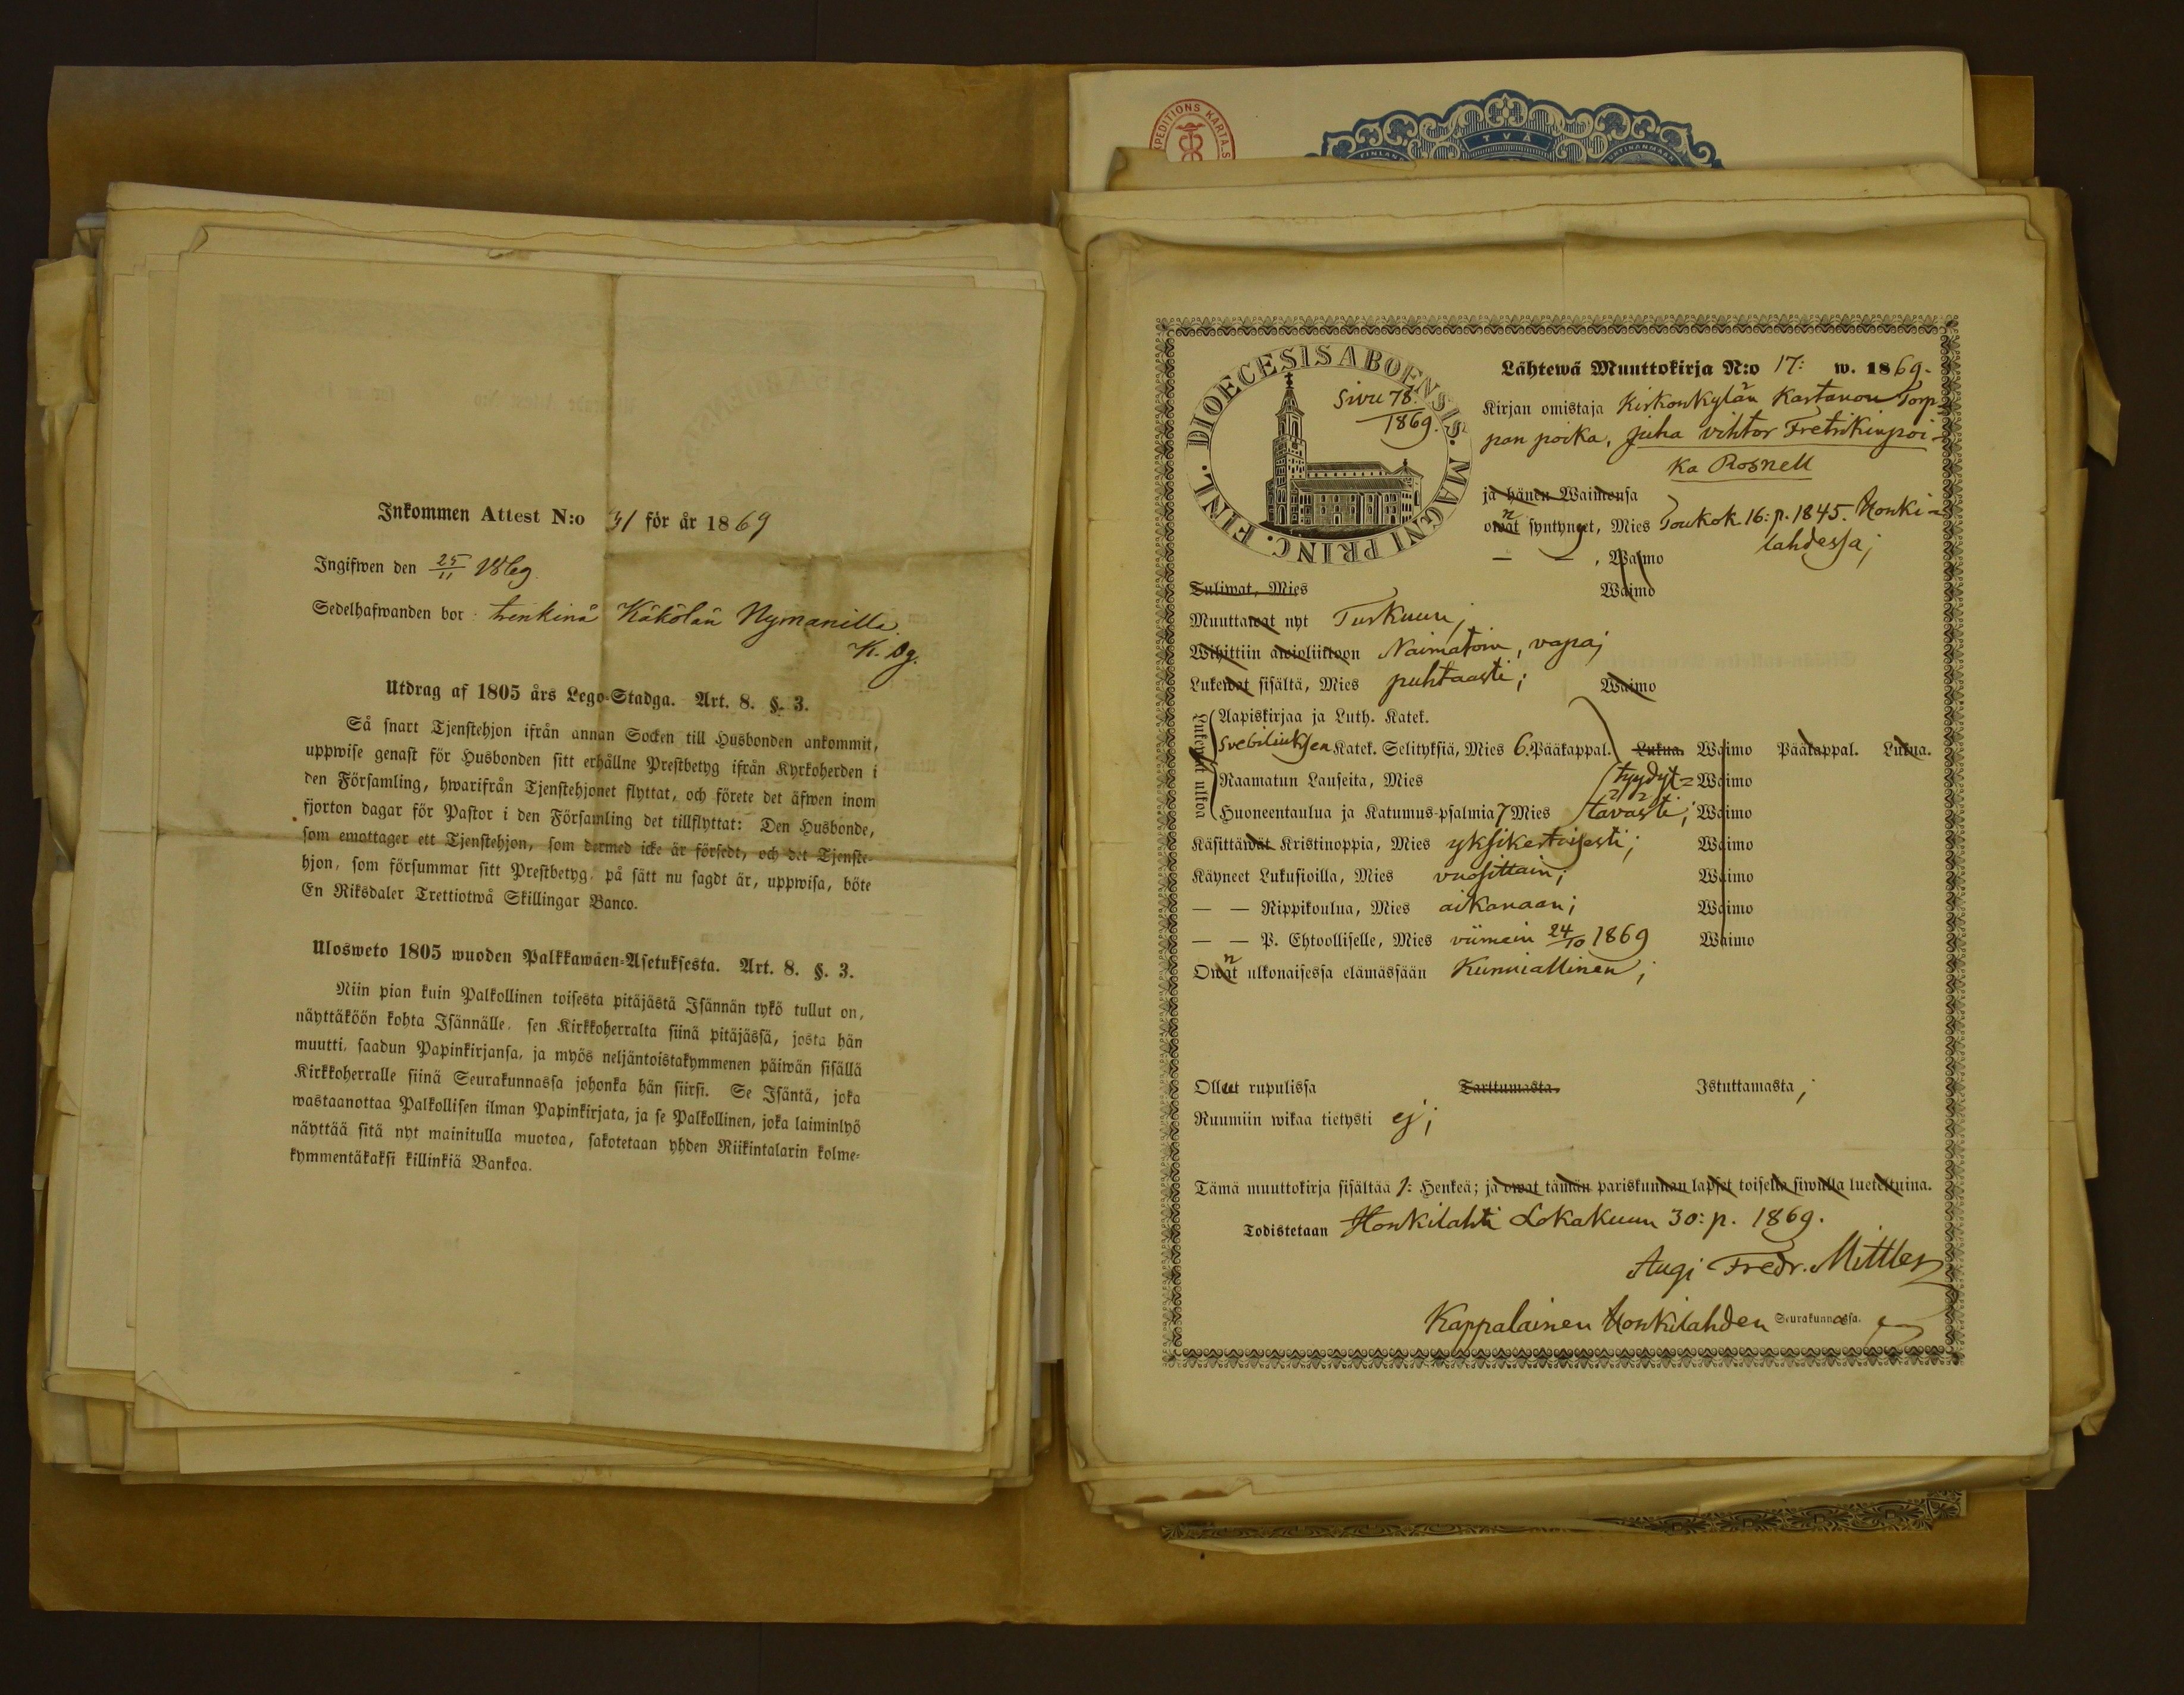 Inkommen Attest N:o 31 för år 1869
Ingifwen den 25/11 1869.
Sedelhafwanden bor trenkinä Käkölän Nymanilla.
K. Dg.
Utdrag af 1805 års Lego-Stadga. Art. 8. §. 3.
Så snart Tjenstehjon ifrån annan Socken till Husbonden ankommit,
uppwise genast för Husbonden sitt erhållne Prestbetyg ifrån Kyrkoherden i
den Församling, hwarifrån Tjenstehjonet flyttat, och förete det äfwen inom
fjorton dagar för Pastor i den Församling det tillflyttat: Den Husbonde,
som emottager ett Tjenstehjon, som dermed icke är försedt, och det Tjenste-
hjon, som försummar sitt Prestbetyg, på sätt nu sagdt är, uppwisa, böte
En Riksdaler Trettiotwå Skillingar Banco.
Ulosweto 1805 wuoden Palkkawäen-Asetuksesta. Art. 8. §. 3.
Niin pian kuin Palkollinen toisesta pitäjästä Isännän tykö tullut on,
näyttäköön kohta Isännälle, sen Kirkkoherralta siinä pitäjässä, josta hän
muutti, saadun Papinkirjansa, ja myös neljäntoistakymmenen päiwän sisällä
Kirkkoherralle siinä Seurakunnassa johonka hän siirsi. Se Isäntä, joka
wastaanottaa Palkollisen ilman Papinkirjata, ja se Palkollinen, joka laiminlyö
näyttää sitä nyt mainitulla muotoa, sakotetaan yhden Riikintalarin kolme-
kymmentäkaksi killinkiä Bankoa.
PEDITIONS KARTA S
TVÅ
FINLAN
DIOECESIS ABOENSIS. MAGNI PRINC. FINL.
Sivu 78.
1869.
Lähtewä Muuttokirja N:o 17: w. 1869.
Kirjan omistaja Kirkonkylän Kartanon Torp-
pan poika, Juha vihtor Fretrikinpoi-
ka Rosnell
ja hänen Waimonsa
owat n syntynyet, Mies Toukok. 16: p. 1845. Honki-
lahdessa;
— — , Waimo
Tuliwat, Mies Waimo
Muuttawat nyt Turkuun;
Wihittiin awioliittoon Naimatoin, vapa;
Lukewat sisältä, Mies puhtaasti; Waimo
Lukewat ulkoa
Aapiskirjaa ja Luth. Katek.
Svebiliuksen Katek. Selityksiä, Mies 6. Pääkappal. Lukua. Waimo Pääkappal. Lukua.
Raamatun Lauseita, Mies tyydyt= Waimo
Huoneentaulua ja Katumus-psalmia 7 Mies tävästi; Waimo
Käsittäwät Kristinoppia, Mies yksikertaisesti; Waimo
Käyneet Lukusioilla, Mies vuosittain; Waimo
— — Rippikoulua, Mies aikanaan; Waimo
— — P. Ehtoolliselle, Mies viimein 24/10 1869 Waimo
Owat n ulkonaisessa elämässään Kunniallinen;
Olleet rupulissa Tarttumasta. Istuttamasta;
Ruumiin wikaa tietysti ej;
Tämä muuttokirja sisältää 1: Henkeä; ja owat tämän pariskunnan lapset toisella siwulla lueteltuina.
Todistetaan Honkilahti Lokakuun 30: p. 1869.
Augi Fredr. Mittler
Kappalainen Honkilahden Seurakunnassa.